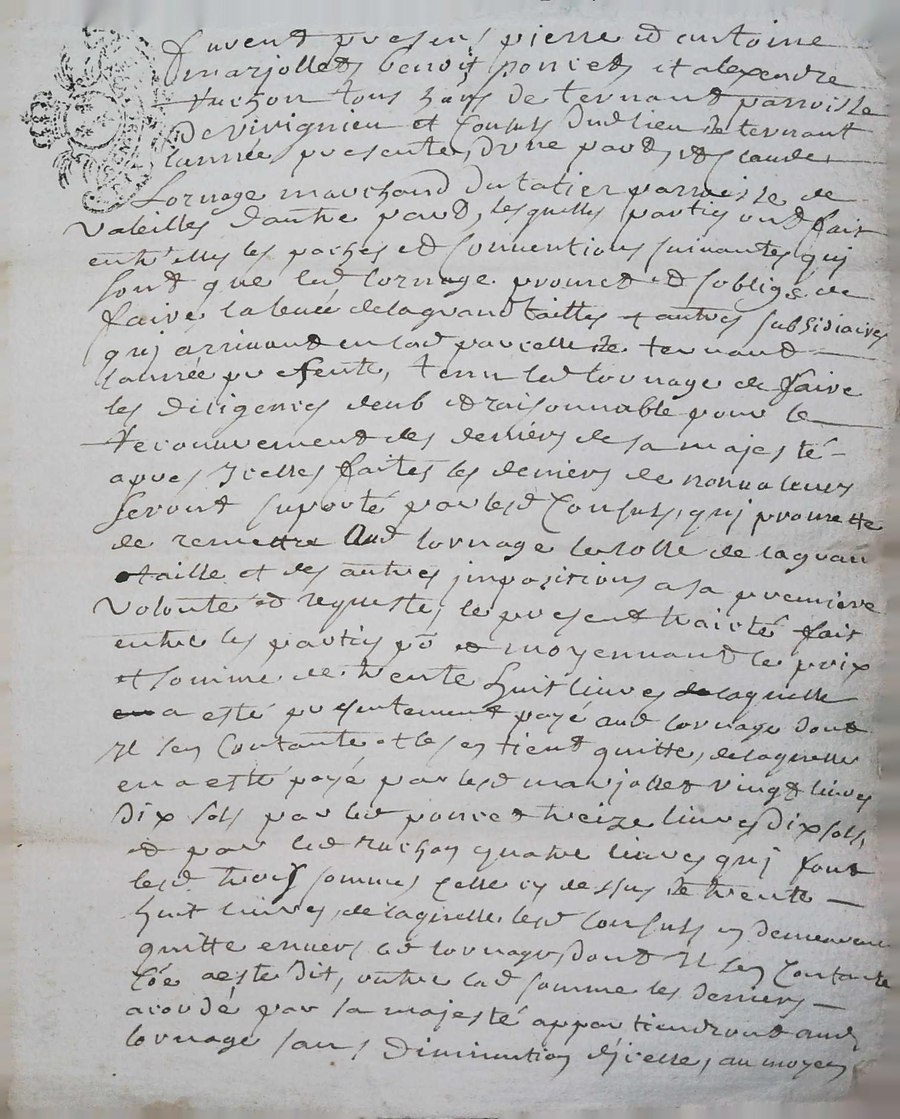 Furent presens pierre et antoine
marjollet, benoit poncet et alexendre
Ruchon tous hans de ternant parroisse
de virignieu et Consuls dud lieu de ternant
lannée presente, d'une part, et claude
Lornage marchand du tatier parroisse de
Valeilles d'autre part, lesquelles parties ont fait
entr'elles les paches et Conventions suivantes qui
sont que led lornage promet et soblige de
faire la levée de la grand tailles et autres subsidiaires
qui arrivont en lad parcelle de ternant
lannée presente, tenu led lornage de faire
les diligences deub et raisonnable pour le
recouvrement des deniers de sa majesté
apres Icelles faites les deniers de nonvaleurs
seront suporté par lesd Consuls, qui promette
de remettre Aud lornage le rolle de la gran
taille et des autres impositions a sa premiere
volonté et requeste, le present traicté fait
entre les parties po et moyennant le prix
et somme de trente huit livres de laquelle
a esté presentement payé aud lornage dont
Il sen Contante et les en tient quitte, de laquelle
en a esté payé par led marjollet vingt livres
dix sols par led poncet treize livres dix sols,
et par led ruchon quatre livres qui font
lesd trois sommes celle cy dessus de trente
huit livres, de laquelle lesd Consuls en demeurent
quitte envers led lornage dont Il sen Contante
Coe a esté dit, outre lad somme les deniers
acordé par sa majesté appartiendront aud
lornage sans diminution d'icelle, au moyen